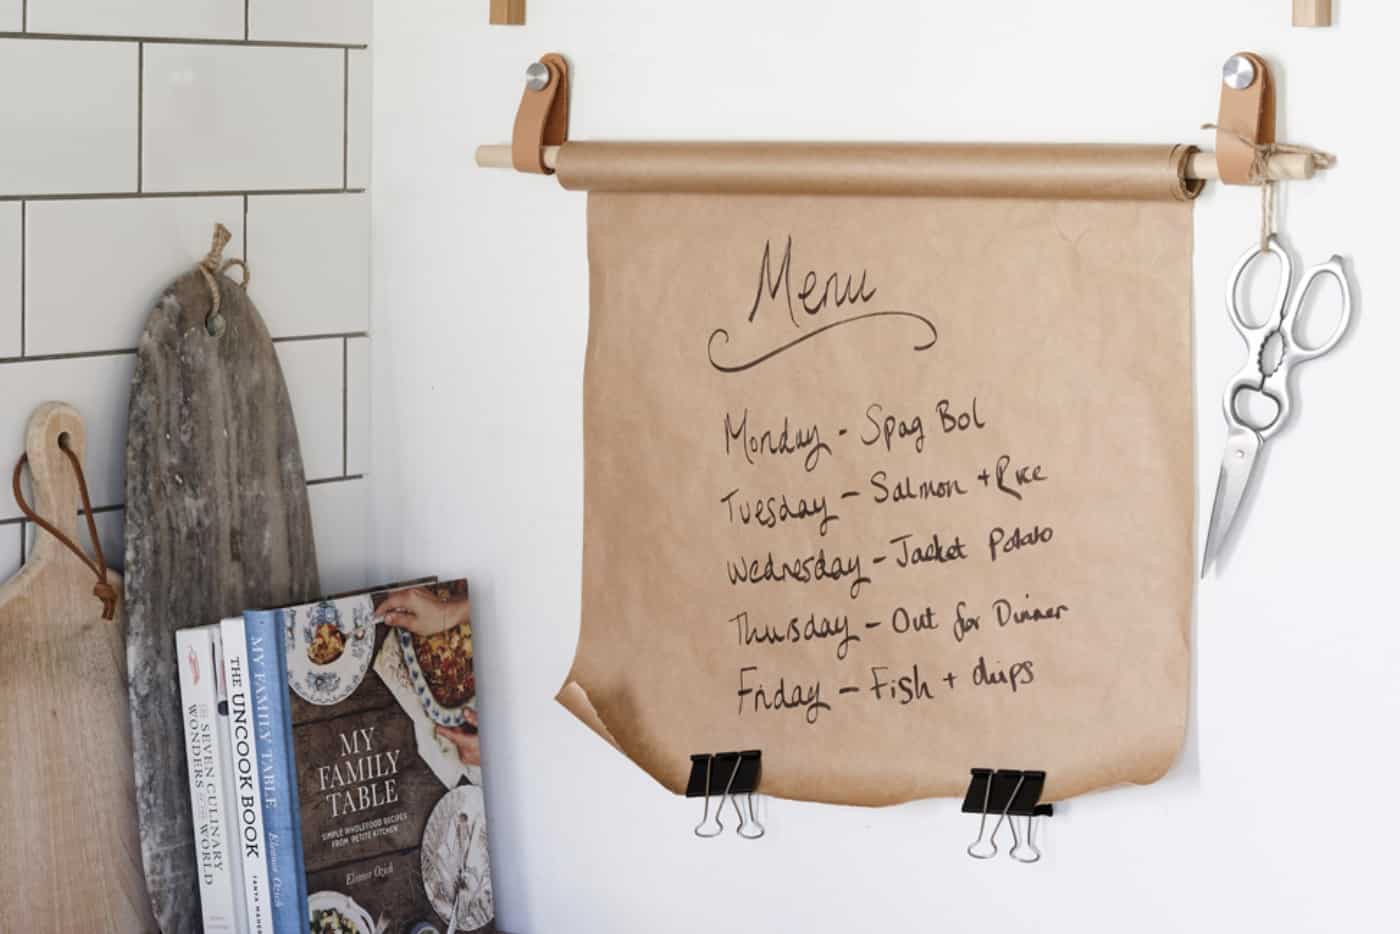 Menu
Monday - Spag Bol
Tuesday - Salmon + Rice
Wednesday - Jacket Potato
Thursday - Out for Dinner
Friday - Fish + chips
THE SEVEN CULINARY
WONDERS OF THE WORLD
THE UNCOOK BOOK
MY FAMILY TABLE
Eleanor Ozich
MY
FAMILY
TABLE
SIMPLE WHOLEFOOD RECIPES
FROM PETITE KITCHEN
Eleanor Ozich